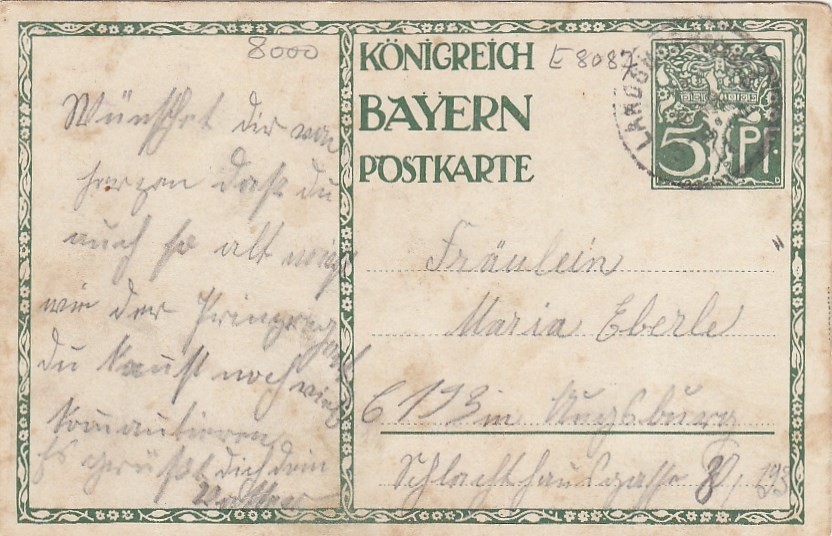 8000
Wünschet dir von
herzen daß du
auch so alt wirst
wie der Prinzregent
du kannst noch viel
komautieren
Es grüßt dich dein
KÖNIGREICH
BAYERN
POSTKARTE
E 8087
5 Pf.
Fräulein
Maria Eberle
G 193 in Augsburg
Schlachthausgasse
193